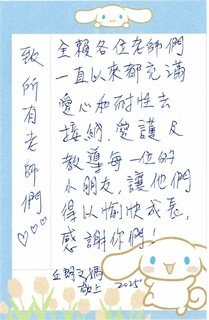 致所有老師們♡♡♡
全賴各位老師們
一直以來都充滿
愛心和耐性去
接納、愛護及
教導每一位的
小朋友，讓他們
得以愉快成長，
感謝你們！
敬上
2025